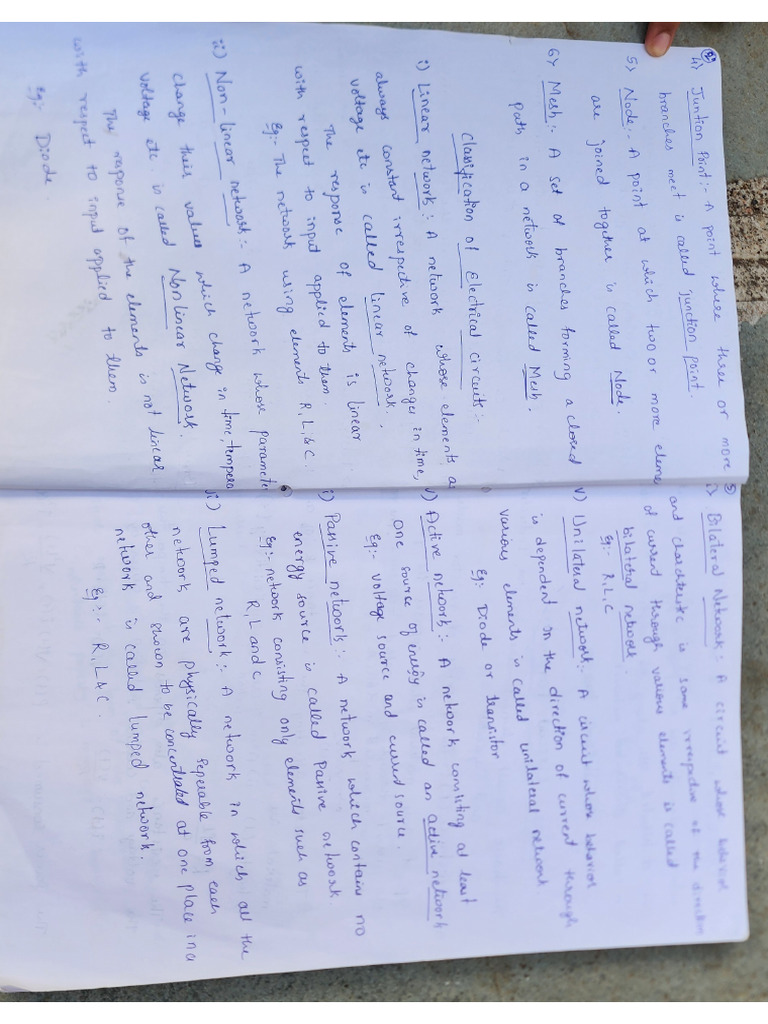 4) Juntion Point :- A point where three or more
branches meet is called junction point.
5) Node :- A point at which two or more eleme
are joined together is called Node.
6) Mesh :- A set of branches forming a closed
path in a network is called Mesh.
Classification of Electrical circuits :-
i) Linear network :- A network whose elements a
always constant irrespective of changes in time,
voltage etc is called linear network.
The response of elements is linear
with respect to input applied to them.
Eg:- The network using elements R, L, & C.
ii) Non-linear network :- A network whose paramete
change their values which change in time, tempera
voltage etc is called Non linear Network.
The response of the elements is not linear
with respect to input applied to them.
Eg:- Diode.
Bilateral Network : A circuit whose behavior
and charchteristic is same irrespective of the direction
of current through various elements is called
bilateral network.
Eg:- R, L, C
v) Unilateral network :- A circuit whose behavior
is dependent on the direction of current through
various elements is called unilateral network
Eg:- Diode or transitor
v) Active network :- A network consisting at least
one source of energy is called an active network
Eg:- voltage source and current source.
i) Passive network :- A network which contains no
energy source is called Passive network
Eg:- network consisting only elements such as
R, L and C
vi) Lumped network :- A network in which all the
network are physically seperable from each
other and shown to be concentrated at one place in a
network is called lumped network.
Eg:- R, L & C.